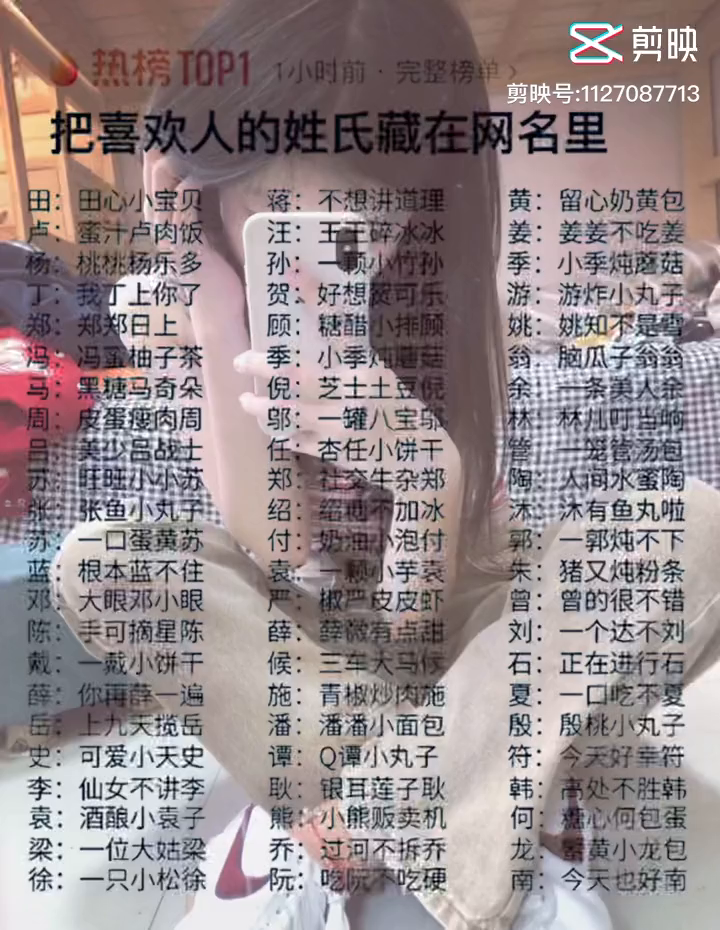 剪映
剪映号:1127087713
热榜 TOP1 1小时前 · 完整榜单 >
把喜欢人的姓氏藏在网名里
田: 田心小宝贝 蒋: 不想讲道理 黄: 留心奶黄包
卢: 蜜汁卢肉饭 汪: 王王碎冰冰 姜: 姜姜不吃姜
杨: 桃桃杨乐多 孙: 一颗小竹孙 季: 小季炖蘑菇
丁: 我丁上你了 贺: 好想贺可乐 游: 游炸小丸子
郑: 郑郑日上 顾: 糖醋小排顾 姚: 姚知不是雪
冯: 冯蜜柚子茶 季: 小季炖蘑菇 翁: 脑瓜子翁翁
马: 黑糖马奇朵 倪: 芝士土豆倪 余: 一条美人余
周: 皮蛋瘦肉周 邬: 一罐八宝邬 林: 林儿叮当响
吕: 美少吕战士 任: 杏任小饼干 管: 一笼管汤包
苏: 旺旺小小苏 郑: 社交牛杂郑 陶: 人间水蜜陶
张: 张鱼小丸子 绍: 绍 不加冰 沐: 沐有鱼丸啦
苏: 一口蛋黄苏 付: 奶油小泡付 郭: 一郭炖不下
蓝: 根本蓝不住 袁: 一颗小芋袁 朱: 猪又炖粉条
邓: 大眼邓小眼 严: 椒严皮皮虾 曾: 曾的很不错
陈: 手可摘星陈 薛: 薛微有点甜 刘: 一个达不刘
戴: 一戴小饼干 候: 三车大马候 石: 正在进行石
薛: 你再薛一遍 施: 青椒炒肉施 夏: 一口吃不夏
岳: 上九天揽岳 潘: 潘潘小面包 殷: 殷桃小丸子
史: 可爱小天史 谭: Q谭小丸子 符: 今天好幸符
李: 仙女不讲李 耿: 银耳莲子耿 韩: 高处不胜韩
袁: 酒酿小袁子 熊: 小熊贩卖机 何: 糖心何包蛋
梁: 一位大姑梁 乔: 过河不拆乔 龙: 蟹黄小龙包
徐: 一只小松徐 阮: 吃阮不吃硬 南: 今天也好南